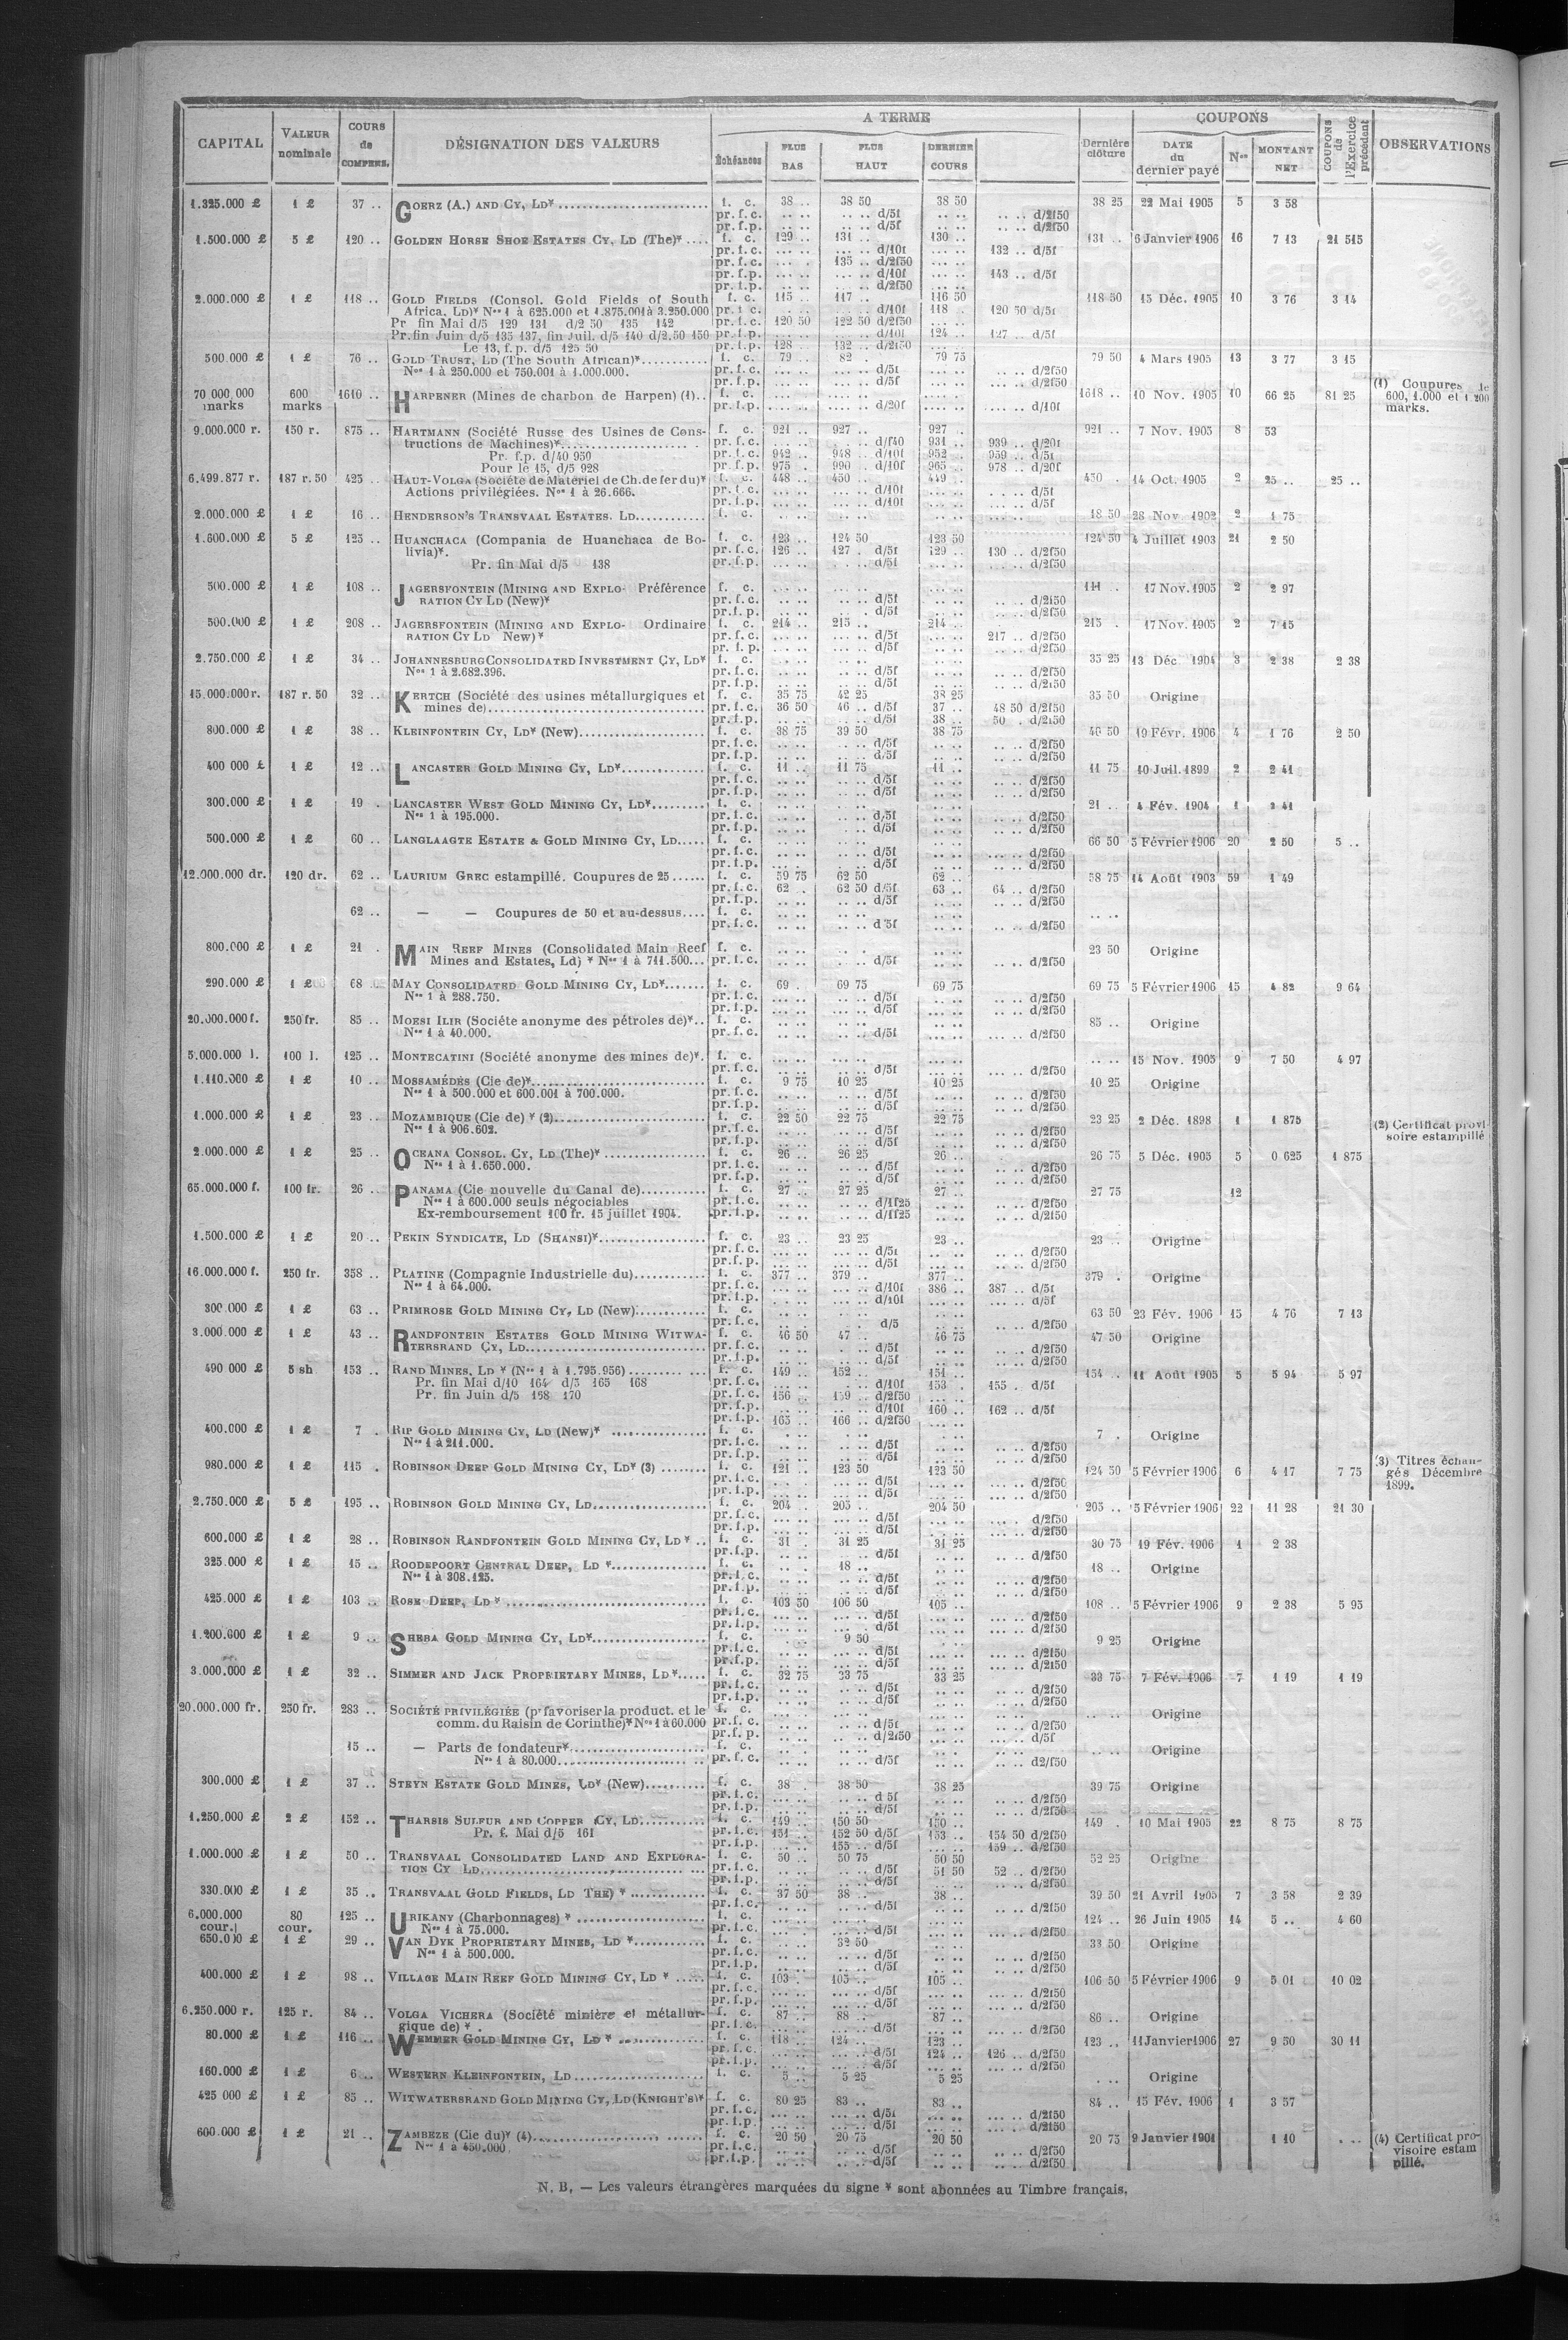 CAPITAL VALEUR nominale COURS de COMPENS. DÉSIGNATION DES VALEURS A TERME Échéances PLUS BAS PLUS HAUT DERNIER COURS Dernière clôture COUPONS DATE du dernier payé Nos MONTANT NET COUPONS de l'Exercice précédent OBSERVATIONS
1.325.000 £ 1 £ 37 .. GOERZ (A.) AND CY, LD* f. c. 38 .. 38 50 38 50 38 25 22 Mai 1905 5 3 58
pr. f. c. .. .. .. .. d/5f .. .. .. .. d/2f50
pr. f. p. .. .. .. .. d/5f .. .. .. .. d/2f50
1.500.000 £ 5 £ 120 .. GOLDEN HORSE SHOE ESTATES CY, LD (The)* .... f. c. 129 .. 131 .. 130 .. 131 .. 6 Janvier 1906 16 7 13 21 515
pr. f. c. ... .. ... .. d/10f ... .. 132 .. d/5f
pr. f. c. ... .. 135 .. d/2f50 ... ..
pr. f. p. ... .. ... .. d/10f ... .. 143 .. d/5f
pr. f. p. ... .. ... .. d/2f50 ... ..
2.000.000 £ 1 £ 118 .. GOLD FIELDS (Consol. Gold Fields of South f. c. 115 .. 117 .. 116 50 118 50 15 Déc. 1905 10 3 76 3 14
Africa, LD)* Nos 1 à 625.000 et 1.875.001 à 3.250.000 pr. f. c. ... .. ... .. d/10f 118 . 120 50 d/5f
Pr fin Mai d/5 129 131 d/2 50 135 142 pr. f. c. 120 50 122 50 d/2f50 ... ..
Pr. fin Juin d/5 135 137, fin Juil. d/5 140 d/2.50 150 pr. f. p. ... .. ... .. d/10f 124 .. 127 .. d/5f
Le 13, f. p. d/5 125 50 pr. f. p. 128 .. 132 .. d/2f50 ... ..
500.000 £ 1 £ 76 .. GOLD TRUST, LD (The South African)* f. c. 79 .. 82 . 79 75 79 50 4 Mars 1905 13 3 77 3 15
Nos 1 à 250.000 et 750.001 à 1.000.000. pr. f. c. ... .. ... .. d/5f ... .. ... .. d/2f50
pr. f. p. ... .. ... .. d/5f ... .. ... .. d/2f50
70 000 000 marks 600 marks 1610 .. HARPENER (Mines de charbon de Harpen) (1).. f. c. 1618 .. 10 Nov. 1905 10 66 25 81 25 (1) Coupures de 600, 1.000 et 1.200 marks.
pr. f. p. .... .. .... .. d/20f .... .. .... .. d/10f
9.000.000 r. 150 r. 875 .. HARTMANN (Société Russe des Usines de Cons- f. c. 921 .. 927 .. 927 .. 921 .. 7 Nov. 1905 8 53
tructions de Machines)* pr. f. c. ... .. ... .. d/f40 931 .. 939 .. d/20f
Pr. f.p. d/40 950 pr. f. c. 942 .. 948 .. d/10f 952 . 959 .. d/5f
Pour le 15, d/5 928 pr. f. p. 975 . 990 d/10f 965 .. 978 .. d/20f
6.499.877 r. 187 r. 50 425 .. HAUT-VOLGA (Société de Matériel de Ch. de fer du)* f. c. 448 .. 450 . 449 .. 450 . 14 Oct. 1905 2 25 .. 25 ..
Actions privilégiées. Nos 1 à 26.666. pr. f. c. ... .. ... .. d/10f ... .. ... .. d/5f
pr. f. p. ... .. ... .. d/10f ... .. ... .. d/5f
2.000.000 £ 1 £ 16 .. HENDERSON'S TRANSVAAL ESTATES. LD f. c. 18 50 28 Nov. 1902 2 1 75
1.600.000 £ 5 £ 125 .. HUANCHACA (Compania de Huanchaca de Bo- f. c. 123 .. 124 50 123 50 124 50 4 Juillet 1903 21 2 50
livia)*. pr. f. c. 126 .. 127 . d/5f 129 .. 130 .. d/2f50
Pr. fin Mai d/5 138 pr. f. p. ... .. ... .. d/5f ... .. ... .. d/2f50
500.000 £ 1 £ 108 .. JAGERSFONTEIN (MINING AND EXPLO- Préférence f. c. 111 .. 17 Nov. 1905 2 2 97
RATION CY LD (New)* pr. f. c. .. .. .. .. d/5f .. .. .. .. d/2f50
pr. f. p. .. .. .. .. d/5f .. .. .. .. d/2f50
500.000 £ 1 £ 208 .. JAGERSFONTEIN (MINING AND EXPLO- Ordinaire f. c. 214 .. 215 .. 214 .. 215 . 17 Nov. 1905 2 7 15
RATION CY LD New)* pr. f. c. ... .. ... .. d/5f ... .. 217 .. d/2f50
pr. f. p. ... .. ... .. d/5f ... .. ... .. d/2f50
2.750.000 £ 1 £ 34 .. JOHANNESBURG CONSOLIDATED INVESTMENT CY, LD* f. c. 35 25 13 Déc. 1904 3 2 38 2 38
Nos 1 à 2.682.396. pr. f. c. .. .. .. .. d/5f .. .. .. .. d/2f50
pr. f. p. .. .. .. .. d/5f .. .. .. .. d/2f50
15.000.000 r. 187 r. 50 32 .. KERTCH (Société des usines métallurgiques et f. c. 35 75 42 25 38 25 35 50 Origine
mines de) pr. f. c. 36 50 46 .. d/5f 37 .. 48 50 d/2f50
pr. f. p. .. .. .. .. d/5f 38 .. 50 . d/2f50
800.000 £ 1 £ 38 .. KLEINFONTEIN CY, LD* (New) f. c. 38 75 39 50 38 75 40 50 19 Févr. 1906 4 1 76 2 50
pr. f. c. .. .. .. .. d/5f .. .. .. .. d/2f50
pr. f. p. .. .. .. .. d/5f .. .. .. .. d/2f50
400 000 £ 1 £ 12 .. LANCASTER GOLD MINING CY, LD* f. c. 11 .. 11 75 11 .. 11 75 10 Juil. 1899 2 2 41
pr. f. c. .. .. .. .. d/5f .. .. .. .. d/2f50
pr. f. p. .. .. .. .. d/5f .. .. .. .. d/2f50
300.000 £ 1 £ 19 . LANCASTER WEST GOLD MINING CY, LD* f. c. 21 .. 4 Fév. 1904 1 2 41
Nos 1 à 195.000. pr. f. c. .. .. .. .. d/5f .. .. .. .. d/2f50
pr. f. p. .. .. .. .. d/5f .. .. .. .. d/2f50
500.000 £ 1 £ 60 .. LANGLAAGTE ESTATE & GOLD MINING CY, LD f. c. 66 50 5 Février 1906 20 2 50 5 ..
pr. f. c. ... .. ... .. d/5f ... .. ... .. d/2f50
pr. f. p. ... .. ... .. d/5f ... .. ... .. d/2f50
12.000.000 dr. 120 dr. 62 .. LAURIUM GREC estampillé. Coupures de 25 f. c. 59 75 62 50 62 .. 58 75 14 Août 1903 59 1 49
pr. f. c. 62 . 62 50 d/5f 63 .. 64 .. d/2f50
pr. f. p. .. .. .. .. d/5f .. .. .. .. d/2f50
62 .. — — Coupures de 50 et au-dessus f. c. .. ..
pr. f. c. .. .. .. .. d 5f .. .. .. .. d/2f50
800.000 £ 1 £ 21 . MAIN REEF MINES (Consolidated Main Reef f. c. 23 50 Origine
Mines and Estates, Ld) * Nos 1 à 711.500 pr. f. c. .. .. .. .. d/5f .. .. .. .. d/2f50
290.000 £ 1 £ 68 .. MAY CONSOLIDATED GOLD MINING CY, LD* f. c. 69 . 69 75 69 75 69 75 5 Février 1906 15 4 82 9 64
Nos 1 à 288.750. pr. f. c. .. .. .. .. d/5f .. .. .. .. d/2f50
pr. f. p. .. .. .. .. d/5f .. .. .. .. d/2f50
20.000.000 f. 250 fr. 85 .. MOESI ILIR (Société anonyme des pétroles de)*.. f. c. 85 .. Origine
Nos 1 à 40.000. pr. f. c. ... .. ... .. d/5f ... .. ... .. d/2f50
5.000.000 l. 100 l. 125 .. MONTECATINI (Société anonyme des mines de)*. f. c. .. .. 15 Nov. 1905 9 7 50 4 97
pr. f. c. ... .. ... .. d/5f ... .. ... .. d/2f50
1.110.000 £ 1 £ 10 .. MOSSAMÉDÈS (Cie de)* f. c. 9 75 10 25 10 25 10 25 Origine
Nos 1 à 500.000 et 600.001 à 700.000. pr. f. c. .. .. .. .. d/5f .. .. .. .. d/2f50
pr. f. p. .. .. .. .. d/5f .. .. .. .. d/2f50
1.000.000 £ 1 £ 23 .. MOZAMBIQUE (Cie de) * (2) f. c. 22 50 22 75 22 75 23 25 2 Déc. 1898 1 1 875 (2) Certificat provisoire estampillé
Nos 1 à 906.602. pr. f. c. .. .. .. .. d/5f .. .. .. .. d/2f50
pr. f. p. .. .. .. .. d/5f .. .. .. .. d/2f50
2.000.000 £ 1 £ 25 .. OCEANA CONSOL. CY, LD (The)* f. c. 26 .. 26 25 26 .. 26 75 5 Déc. 1905 5 0 625 1 875
Nos 1 à 1.650.000. pr. f. c. .. .. .. .. d/5f .. .. .. .. d/2f50
pr. f. p. .. .. .. .. d/5f .. .. .. .. d/2f50
65.000.000 f. 100 fr. 26 .. PANAMA (Cie nouvelle du Canal de) f. c. 27 .. 27 25 27 .. 27 75 12
Nos 1 à 600.000 seuls négociables pr. f. c. .. .. .. .. d/1f25 .. .. .. .. d/2f50
Ex-remboursement 100 fr. 15 juillet 1904. pr. f. p. .. .. .. .. d/1f25 .. .. .. .. d/2f50
1.500.000 £ 1 £ 20 .. PEKIN SYNDICATE, LD (SHANSI)* f. c. 23 .. 23 25 23 .. 23 .. Origine
pr. f. c. ... .. ... .. d/5f ... .. ... .. d/2f50
pr. f. p. ... .. ... .. d/5f ... .. ... .. d/2f50
16.000.000 f. 250 fr. 358 .. PLATINE (Compagnie Industrielle du) f. c. 377 .. 379 .. 377 .. 379 . Origine
Nos 1 à 64.000. pr. f. c. ... .. ... .. d/10f 386 .. 387 .. d/5f
pr. f. p. ... .. ... .. d/10f ... .. ... .. d/5f
300.000 £ 1 £ 63 .. PRIMROSE GOLD MINING CY, LD (New) f. c. 63 50 23 Fév. 1906 15 4 76 7 13
pr. f. c. .. .. . d/5 .. .. .. .. d/2f50
3.000.000 £ 1 £ 43 .. RANDFONTEIN ESTATES GOLD MINING WITWA- f. c. 46 50 47 .. 46 75 47 50 Origine
TERSRAND CY, LD pr. f. c. .. .. . .. d/5f .. .. .. .. d/2f50
pr. f. p. .. .. .. .. d/5f .. .. .. .. d/2f50
490 000 £ 5 sh 153 .. RAND MINES, LD * (Nos 1 à 1.795.956) f. c. 149 .. 152 .. 151 .. 154 .. 11 Août 1905 5 5 94 5 97
Pr. fin Mai d/10 164 d/5 165 168 pr. f. c. ... .. . .. d/10f 153 . 155 . d/5f
Pr. fin Juin d/5 168 170 pr. f. c. 156 .. 159 .. d/2f50 ... ..
pr. f. p. ... .. ... .. d/10f 160 .. 162 .. d/5f
pr. f. p. 165 .. 166 .. d/2f50 ... ..
400.000 £ 1 £ 7 . RIP GOLD MINING CY, LD (New)* f. c. 7 . Origine
Nos 1 à 211.000. pr. f. c. ... .. ... .. d/5f ... .. ... .. d/2f50
pr. f. p. ... .. ... .. d/5f ... .. ... .. d/2f50
980.000 £ 1 £ 115 . ROBINSON DEEP GOLD MINING CY, LD* (3) f. c. 121 .. 123 50 123 50 124 50 5 Février 1906 6 4 17 7 75 (3) Titres échangés Décembre 1899.
pr. f. c. ... .. ... .. d/5f ... .. ... .. d/2f50
pr. f. p. ... .. ... .. d/5f ... .. ... .. d/2f50
2.750.000 £ 5 £ 195 .. ROBINSON GOLD MINING CY, LD f. c. 204 .. 205 .. 204 50 205 .. 5 Février 1906 22 11 28 21 30
pr. f. c. ... .. ... .. d/5f ... .. ... .. d/2f50
pr. f. p. ... .. ... .. d/5f ... .. ... .. d/2f50
600.000 £ 1 £ 28 .. ROBINSON RANDFONTEIN GOLD MINING CY, LD * .. f. c. 31 . 31 25 31 25 30 75 19 Fév. 1906 1 2 38
pr. f. p. .. .. .. .. d/5f .. .. .. .. d/2f50
325.000 £ 1 £ 15 .. ROODEPOORT CENTRAL DEEP, LD * f. c. 18 .. 18 .. Origine
Nos 1 à 308.125. pr. f. c. .. .. .. .. d/5f .. .. .. .. d/2f50
pr. f. p. .. .. .. .. d/5f .. .. .. .. d/2f50
425.000 £ 1 £ 103 .. ROSE DEEP, LD * f. c. 103 50 106 50 105 .. 108 .. 5 Février 1906 9 2 38 5 95
pr. f. c. ... .. ... .. d/5f ... .. ... .. d/2f50
pr. f. p. ... .. ... .. d/5f ... .. ... .. d/2f50
1.200.600 £ 1 £ 9 .. SHEBA GOLD MINING CY, LD* f. c. 9 50 9 25 Origine
pr. f. c. ... .. ... .. d/5f ... .. ... .. d/2f50
pr. f. p. ... .. ... .. d/5f ... .. ... .. d/2f50
3.000.000 £ 1 £ 32 .. SIMMER AND JACK PROPRIETARY MINES, LD * f. c. 32 75 33 75 33 25 33 75 7 Fév. 1906 7 1 19 1 19
pr. f. c. .. .. .. .. d/5f .. .. .. .. d/2f50
pr. f. p. .. .. .. .. d/5f .. .. .. .. d/2f50
20.000.000 fr. 250 fr. 283 .. SOCIÉTÉ PRIVILÉGIÉE (pr favoriser la product. et le f. c. .. .. Origine
comm. du Raisin de Corinthe)* Nos 1 à 60.000 pr. f. c. ... .. ... .. d/5f ... .. ... .. d/2f50
pr. f. p. ... .. ... .. d/2f50 ... .. ... .. d/5f
15 .. — Parts de fondateur* f. c. .. .. Origine
Nos 1 à 80.000 pr. f. c. .. .. .. .. d/5f .. .. .. .. d2/f50
300.000 £ 1 £ 37 .. STEYN ESTATE GOLD MINES, LD* (New) f. c. 38 . 38 50 38 25 39 75 Origine
pr. f. c. .. .. .. .. d 5f .. .. .. .. d/2f50
pr. f. p. .. .. .. .. d/5f .. .. .. .. d/2f50
1.250.000 £ 2 £ 152 .. THARSIS SULFUR AND COPPER CY, LD f. c. 149 .. 150 50 150 .. 149 . 10 Mai 1905 22 8 75 8 75
Pr. f. Mai d/5 161 pr. f. c. 151 .. 152 50 d/5f 153 .. 154 50 d/2f50
pr. f. p. ... .. 155 .. d/5f ... .. 159 .. d/2f50
1.000.000 £ 1 £ 50 .. TRANSVAAL CONSOLIDATED LAND AND EXPLORA- f. c. 50 .. 50 75 50 50 52 25 Origine
TION CY LD pr. f. c. .. .. .. .. d/5f 51 50 52 .. d/2f50
pr. f. p. .. .. .. .. d/5f .. .. .. .. d/2f50
330.000 £ 1 £ 35 .. TRANSVAAL GOLD FIELDS, LD THE) * f. c. 37 50 38 .. 38 .. 39 50 21 Avril 1905 7 3 58 2 39
pr. f. c. .. .. .. .. d/5f .. .. .. .. d/2f50
6.000.000 cour. 80 cour. 125 .. URIKANY (Charbonnages) * f. c. 124 .. 26 Juin 1905 14 5 .. 4 60
Nos 1 à 75.000. pr. f. c. ... .. ... .. d/5f ... .. ... .. d/2f50
650.000 £ 1 £ 29 .. VAN DYK PROPRIETARY MINES, LD * f. c. 32 50 33 50 Origine
Nos 1 à 500.000. pr. f. c. .. .. .. .. d/5f .. .. .. .. d/2f50
pr. f. p. .. .. .. .. d/5f .. .. .. .. d/2f50
400.000 £ 1 £ 98 .. VILLAGE MAIN REEF GOLD MINING CY, LD * f. c. 103 . 105 .. 105 .. 106 50 5 Février 1906 9 5 01 10 02
pr. f. c. ... .. ... .. d/5f ... .. ... .. d/2f50
pr. f. p. ... .. ... .. d/5f ... .. ... .. d/2f50
6.250.000 r. 125 r. 84 .. VOLGA VICHERA (Société minière et métallur- f. c. 87 .. 88 .. 87 .. 86 .. Origine
gique de) *. pr. f. c. ... .. ... .. d/5f ... .. ... .. d/2f50
80.000 £ 1 £ 116 .. WEMMER GOLD MINING CY, LD * f. c. 118 .. 124 .. 123 .. 123 .. 11 Janvier 1906 27 9 50 30 11
pr. f. c. ... .. ... .. d/5f 124 .. 126 .. d/2f50
pr. f. p. ... .. ... .. d/5f ... .. ... .. d/2f50
160.000 £ 1 £ 6 .. WESTERN KLEINFONTEIN, LD f. c. 5 .. 5 25 5 25 . .. Origine
425 000 £ 1 £ 85 .. WITWATERSRAND GOLD MINING CY, LD (KNIGHT'S)* f. c. 80 25 83 .. 83 .. 84 .. 15 Fév. 1906 1 3 57
pr. f. c. ... .. ... .. d/5f ... .. ... .. d/2f50
pr. f. p. ... .. ... .. d/5f ... .. ... .. d/2f50
600.000 £ 1 £ 21 .. ZAMBÈZE (Cie du)* (4) f. c. 20 50 20 75 20 50 20 75 9 Janvier 1901 1 10 . .. (4) Certificat provisoire estampillé.
Nos 1 à 450.000 pr. f. c. .. .. .. .. d/5f .. .. .. .. d/2f50
pr. f. p. .. .. .. .. d/5f .. .. .. .. d/2f50
N. B. — Les valeurs étrangères marquées du signe * sont abonnées au Timbre français.